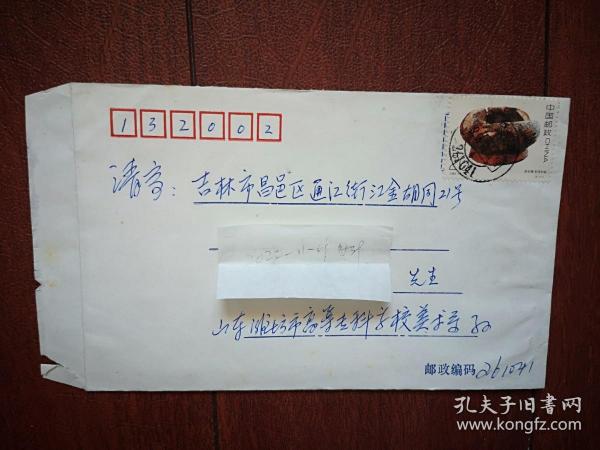 132002
请寄：吉林市昌邑区通江街江金胡同21号
先生
山东潍坊市高等专科学校美术系
邮政编码261041
中国邮政
孔夫子旧书网
www.kongfz.com